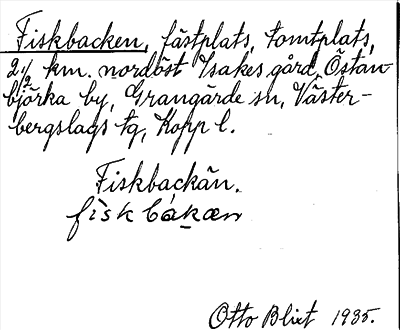 Fiskbacken, fästplats, tomtplats,
2 1/2 km. nordöst Isakes gård, Östan-
björka by, Grangärde sn, Väster-
bergslags tg, Kopp l.
Fiskbackän.
fisk bákæn
Otto Blixt 1935.